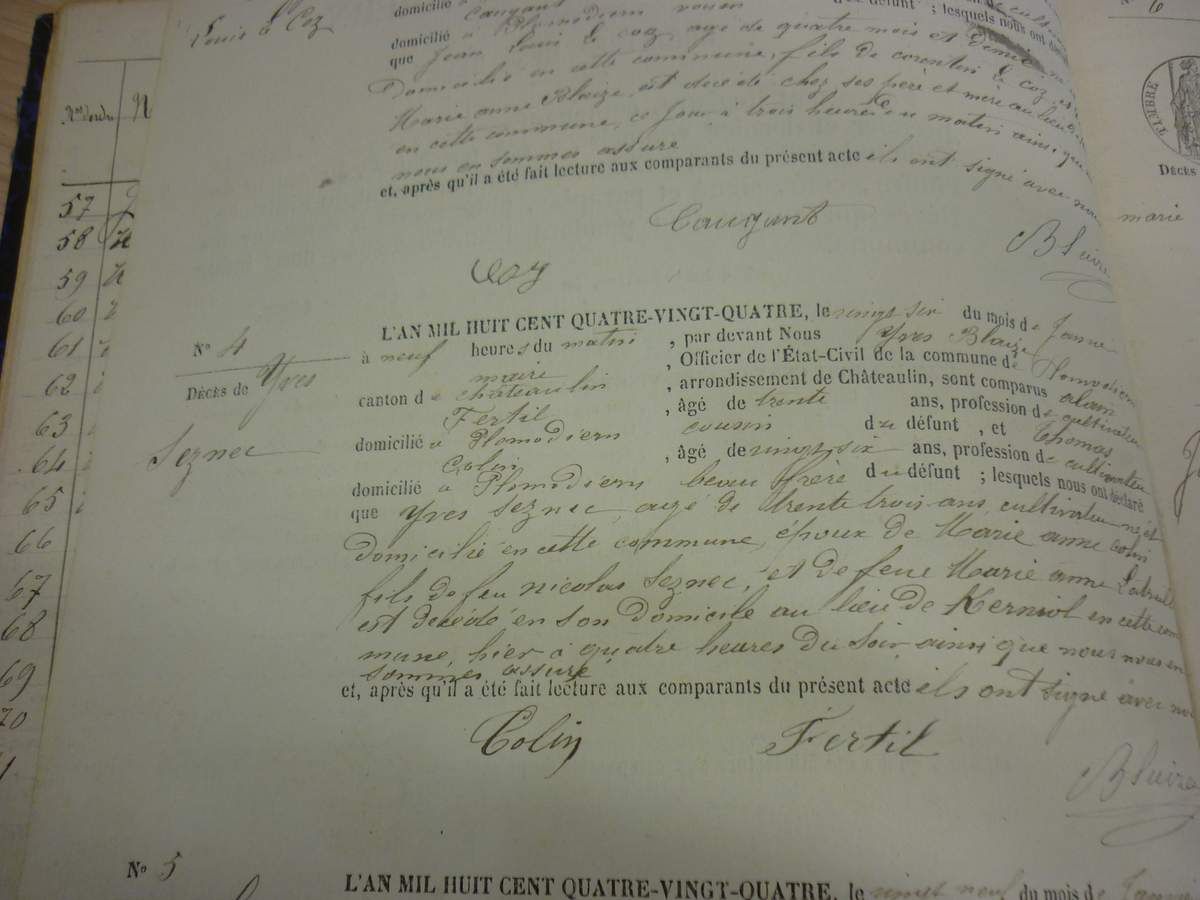 Louis Le Coz
domicilié à Caugant
domicilié à Plomodiern voisin du défunt ; lesquels nous ont
que Jean Louis Le coz agé de quatre mois et demie né
Domicilié en cette commune, fils de corentin Le Coz et
Marie anne Blaize, est décédé chez ses père et mère au lieu
en cette commune, ce Jour à trois heures du matin ainsi que
nous en sommes assuré
et, après qu'il a été fait lecture aux comparants du présent acte ils ont signé avec nou
Caugant
Coz
N° 4
Décès de Yves
Seznec
L'AN MIL HUIT CENT QUATRE-VINGT-QUATRE, le vingt six du mois de Janvie
à neuf heures du matin, par devant Nous Yves Blaize
maire, Officier de l'État-Civil de la commune de Plomodiern
canton de châteaulin, arrondissement de Châteaulin, sont comparus alain
Fertil, âgé de trente ans, profession de cultivateu
domicilié à Plomodiern cousin du défunt, et thomas
Colin, âgé de vingt six ans, profession de cultivateu
domicilié à Plomodiern beveu frère du défunt ; lesquels nous ont déclaré
que Yves Seznec, agé de trente trois ans, cultivateu né et
domicilié en cette commune, époux de Marie anne Colin
fils de feu nicolas Seznec, et de feue Marie anne
est décédé en son domicile au lieu de Kerniol en cette com
mune, hier à quatre heures du soir ainsi que nous nous en
sommes assuré
et, après qu'il a été fait lecture aux comparants du présent acte ils ont signé avec no
Colin Fertil
N° 5
L'AN MIL HUIT CENT QUATRE-VINGT-QUATRE, le vingt neuf du mois de Janvi
57
58
59
60
61
62
63
64
65
66
67
68
69
70
N° 6
TIMBRE
Décès
marie